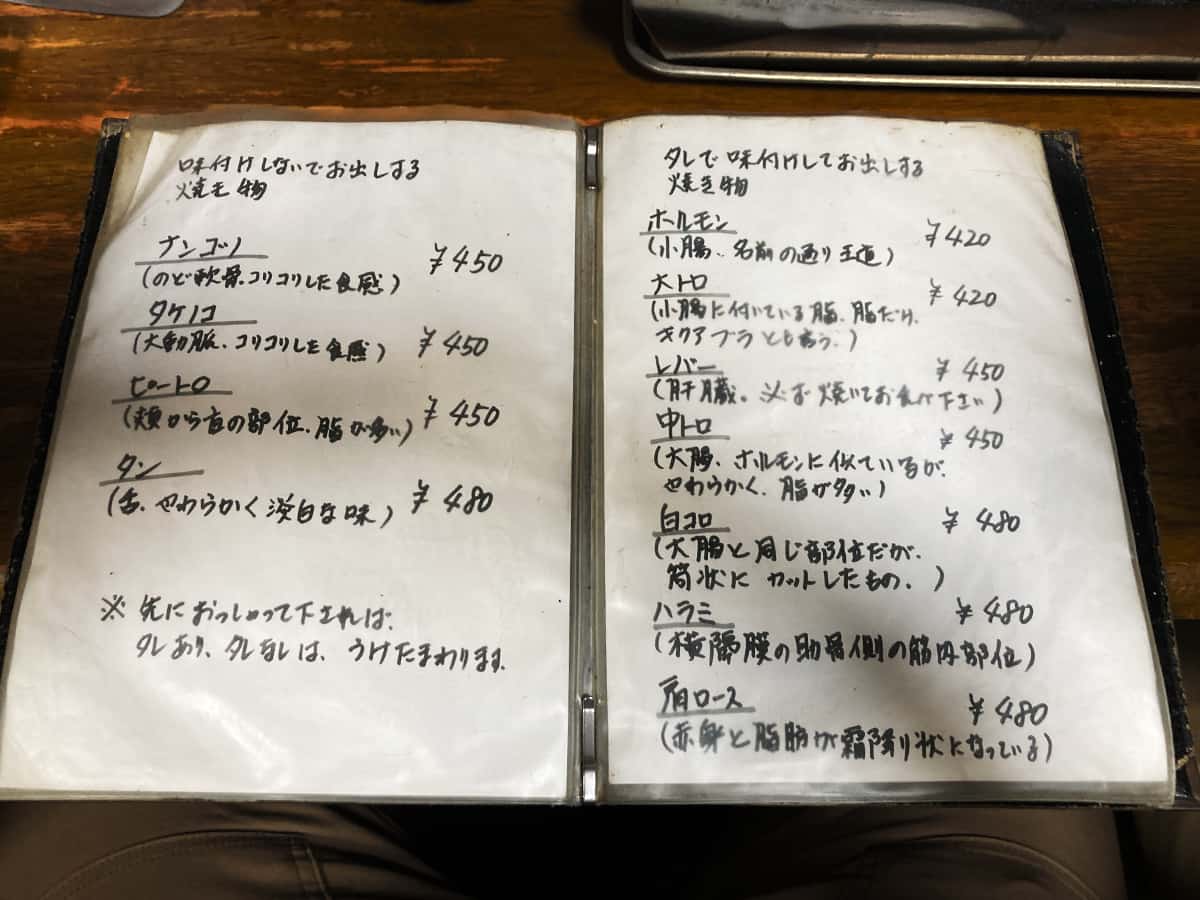 味付けしないでお出しする
焼き物
ナンコツ
¥450
(のど軟骨.コリコリした食感)
タケノコ
(大動脈.コリコリした食感)
¥450
ピートロ
(頬から首の部位.脂が多い)
¥450
タン
(舌.やわらかく淡白な味)
¥480
※ 先におっしゃって下されば.
タレあり、タレなしは、うけたまわります.
タレで味付けしてお出しする
焼き物
ホルモン
¥420
(小腸.名前の通り王道)
大トロ
¥420
(小腸に付いている脂.脂だけ.
キクアブラとも言う.)
レバー
¥450
(肝臓。必ず焼いてお食べ下さい)
中トロ
¥450
(大腸.ホルモンに似ているが.
やわらかく.脂が多い)
白コロ
¥480
(大腸と同じ部位だが.
筒状にカットしたもの.)
ハラミ
¥480
(横隔膜の肋骨側の筋肉部位)
肩ロース
¥480
(赤身と脂肪が霜降り状になっている)